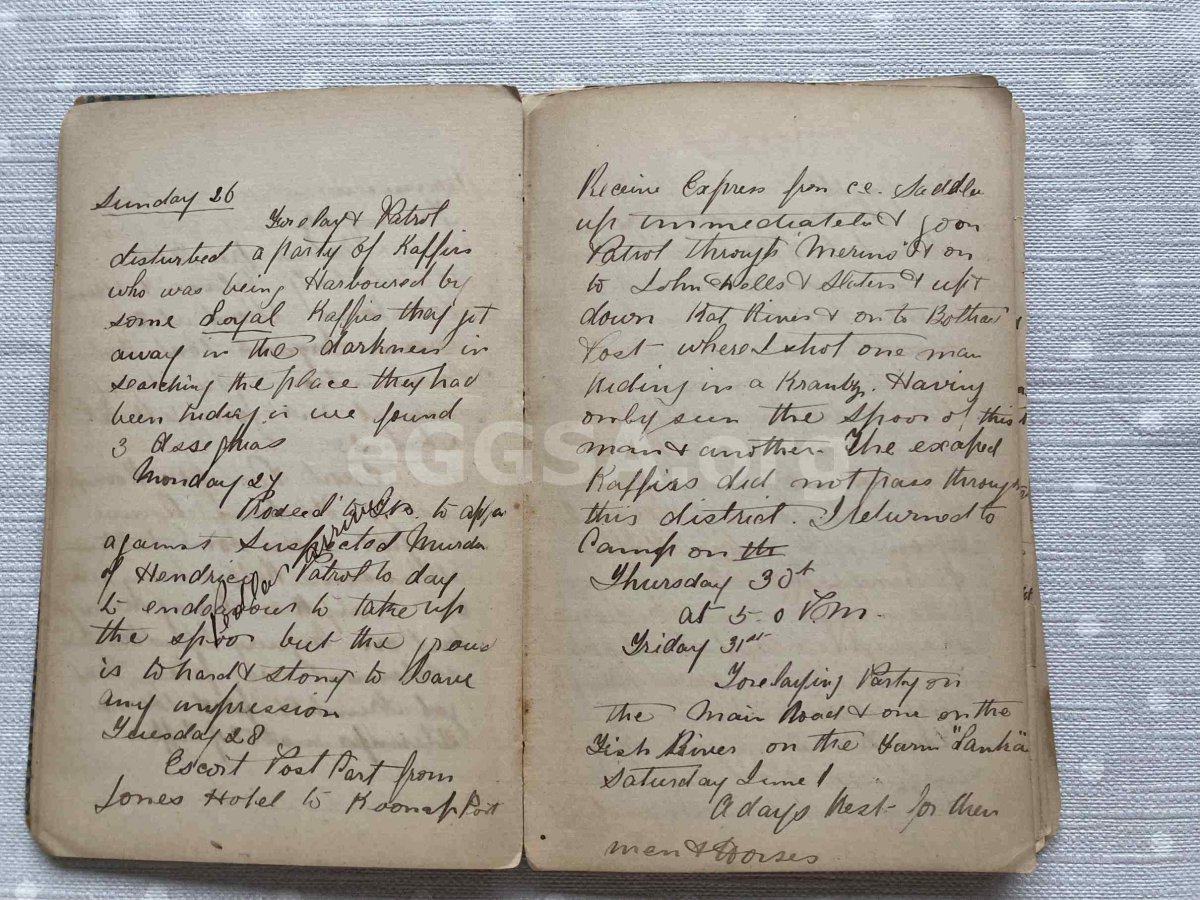 Sunday 26
Forelay & Patrol
disturbed a party of Kaffirs
who was being Harboured by
some Loyal Kaffirs they got
away in the darkness in
searching the place they had
been hiding in we found
3 Asseghias
Monday 27
to
against Suspected Murder
of Hendricks Patrol to day
to endeavour to take up
the spoor but the
is to hard & stony to leave
any impression
Tuesday 28
Escort Post Cart from
Jones Hotel to Koonap Post
Receive Express from c.e. Saddle
up immediately & go on
Patrol through "Merino" & on
to John Wells & Slaters & up &
down Kat River & on to Bothas
Post where I shot one man
hiding in a Krantz. Having
only seen the spoor of this
man & another. The escaped
Kaffirs did not pass through
this district. I returned to
Camp on the
Thursday 30th
at 5.0 P.M.
Friday 31st
Forelaying Party on
the Main Road & one on the
Fish River on the Farm
Saturday June 1
A days Rest for then
men & Horses
eGGSA.org